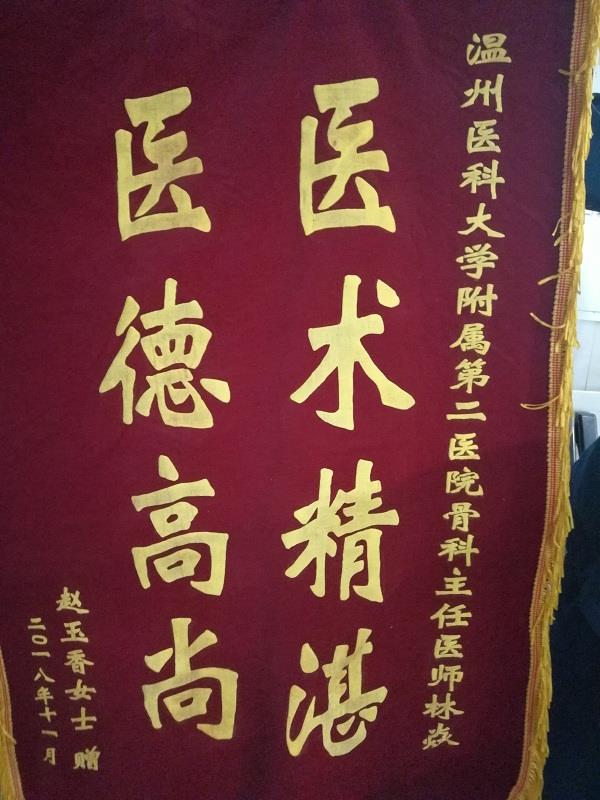 温州医科大学附属第二医院骨科主任医师林焱
医术精湛
医德高尚
赵玉香女士 赠
二〇一八年十一月